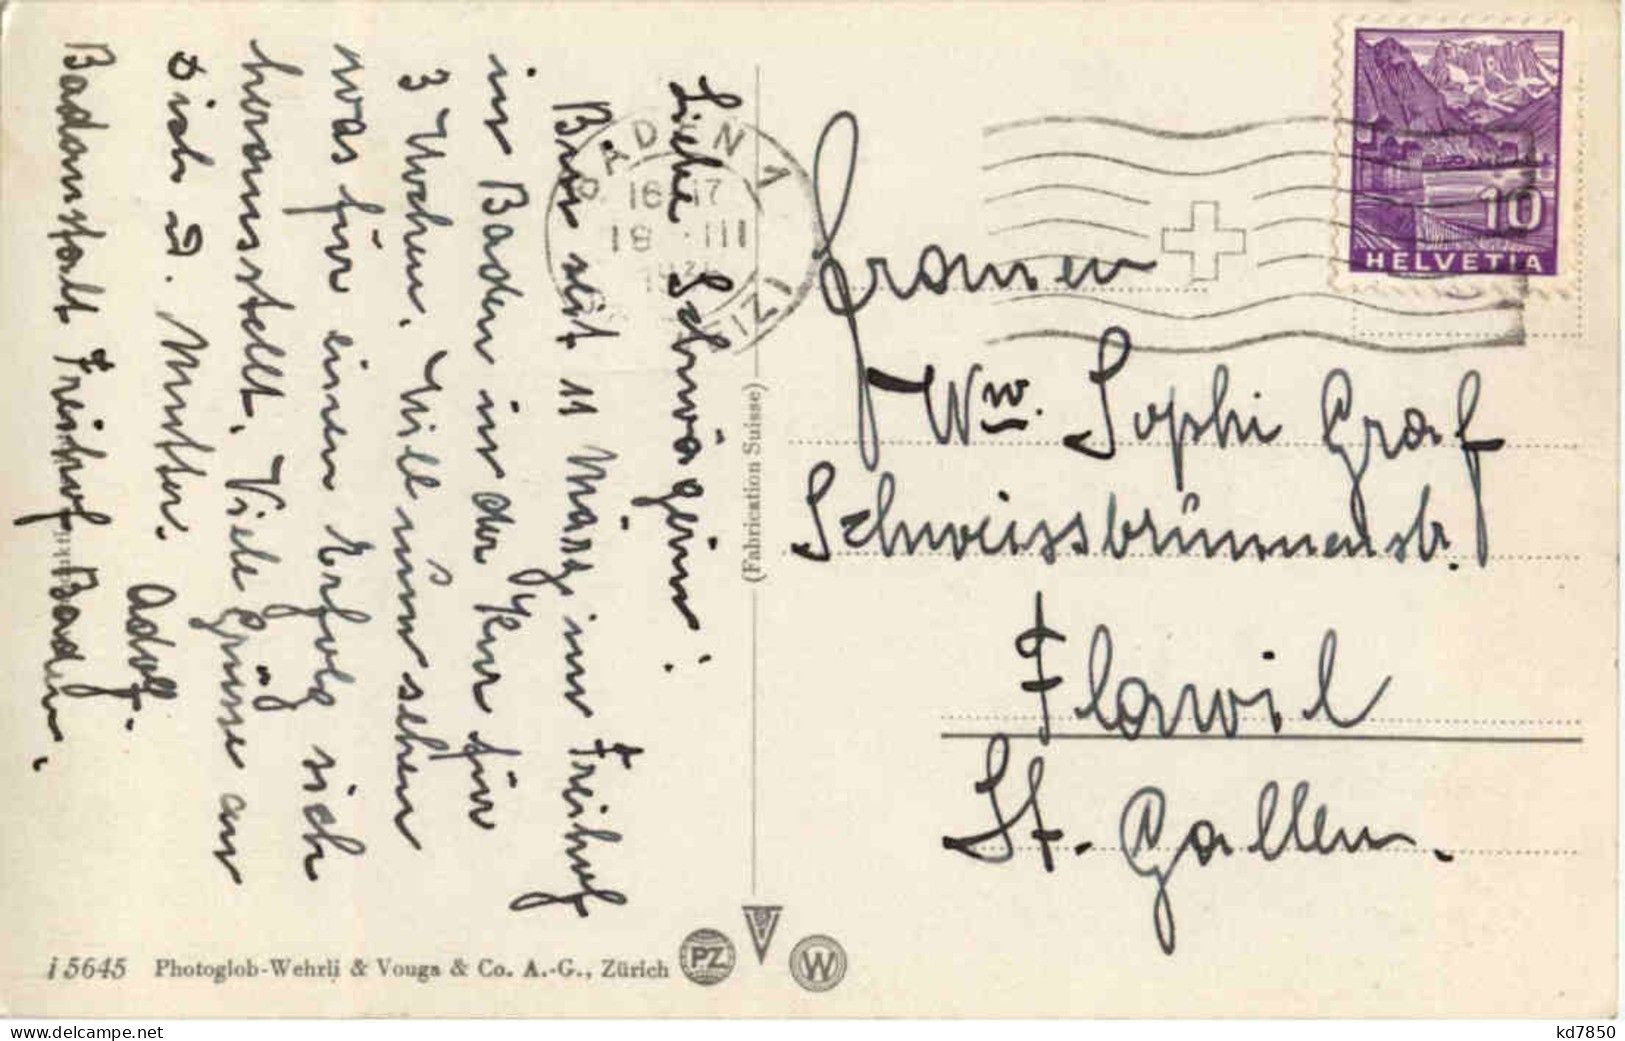 Liebe Schwägerin!
Bin seit 11 März im Freihof
in Baden in der Kur für
3 Wochen. Will nun sehen
was für einen Erfolg sich
herausstellt. Viele Grüsse an
Dich u. Mutter. Adolf.
Badanstalt Freihof Baden.
BADEN 1
16-17
III
(Fabrication Suisse)
HELVETIA
10
Frauen
Ww. Sophi Graf
Schweissbrünnenstr.
Flawil
St. Gallen.
i 5645 Photoglob-Wehrli & Vouga & Co. A.-G., Zürich
PZ
V
W
kd7850
delcampe.net